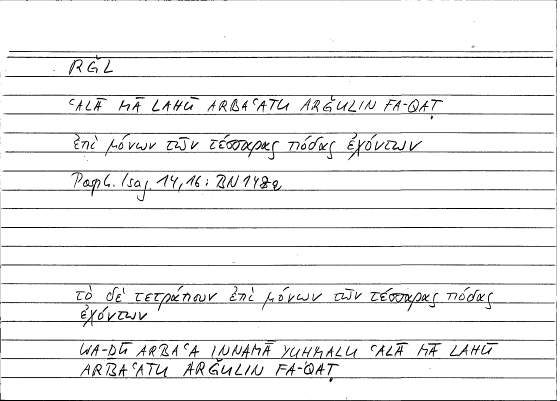 RǦL
ʿALĀ MĀ LAHŪ ARBAʿATU ARǦULIN FA-QAṬ
ἐπὶ μόνων τῶν τέσσαρας πόδας ἐχόντων
Porph. Isag. 14,16: BN 148a
τὸ δὲ τετράπουν ἐπὶ μόνων τῶν τέσσαρας πόδας
ἐχόντων
WA-ḎŪ ARBAʿA INNAMĀ YUḤMALU ʿALĀ MĀ LAHŪ
ARBAʿATU ARǦULIN FA-QAṬ